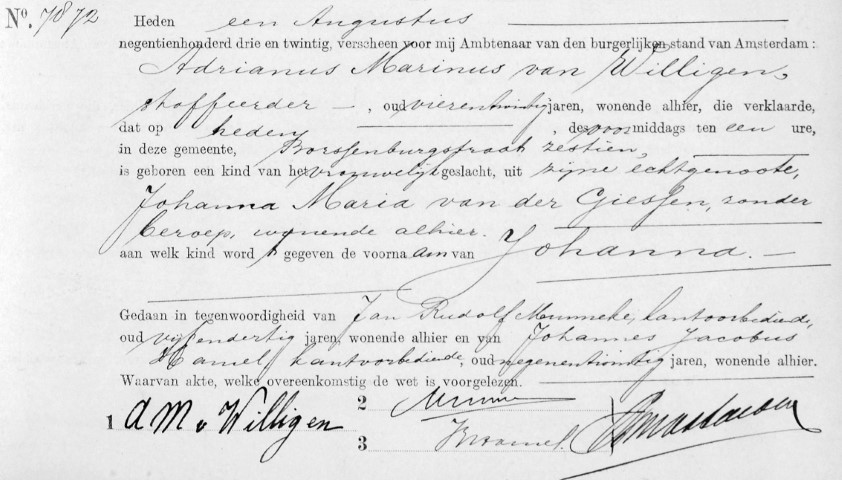 No. 7872 Heden een Augustus
negentienhonderd drie en twintig, verscheen voor mij Ambtenaar van den burgerlijken stand van Amsterdam:
Adrianus Marinus van Willigen,
stoffeerder, oud vierentwintig jaren, wonende alhier, die verklaarde,
dat op heden, des voormiddags ten een ure,
in deze gemeente, Borssenburgstraat zestien,
is geboren een kind van het vrouwelijk geslacht, uit zijne echtgenoote,
Johanna Maria van der Giessen, zonder
beroep, wonende alhier.
aan welk kind wordt gegeven de voornaam van Johanna.
Gedaan in tegenwoordigheid van Jan Rudolf Munneke, kantoorbediende,
oud vijfendertig jaren, wonende alhier en van Johannes Jacobus
Hamel, kantoorbediende, oud negenentwintig jaren, wonende alhier.
Waarvan akte, welke overeenkomstig de wet is voorgelezen.
1 A M v Willigen 2
3 Hamel.